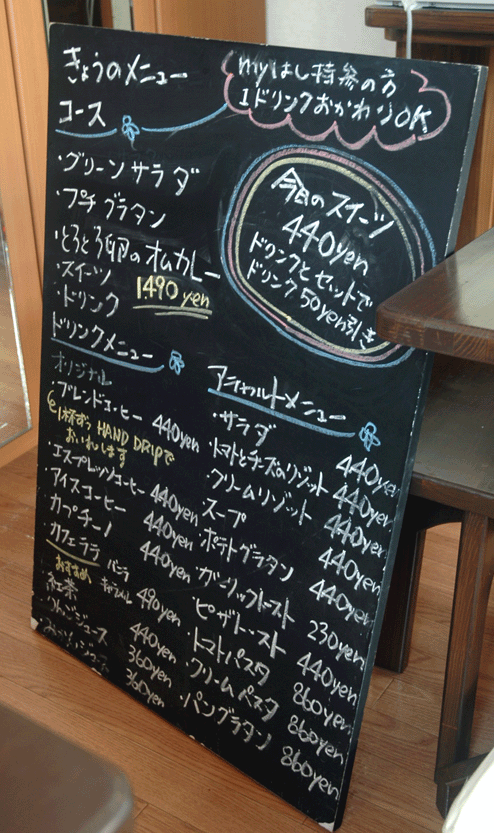 きょうのメニュー
コース
・グリーンサラダ
・プチグラタン
・とろとろ卵のオムカレー
・スイーツ
・ドリンク
1490yen
myはし持参の方
1ドリンクおかわりOK
今日のスイーツ
440yen
ドリンクとセットで
ドリンク50yen引き
ドリンクメニュー
オリジナル
・ブレンドコーヒー 440yen
1杯ずつHAND DRIPで
おいれします
・エスプレッソコーヒー 440yen
・アイスコーヒー 440yen
・カプチーノ 440yen
・カフェラテ バニラ キャラメル 490yen
おすすめ
・紅茶 440yen
・りんごジュース 360yen
ジュース 360yen
アラカルトメニュー
・サラダ 440yen
・トマトとチーズのリゾット 440yen
・クリームリゾット 440yen
・スープ 440yen
・ポテトグラタン 440yen
・ガーリックトースト 230yen
・ピザトースト 440yen
・トマトパスタ 860yen
・クリームパスタ 860yen
・パングラタン 860yen